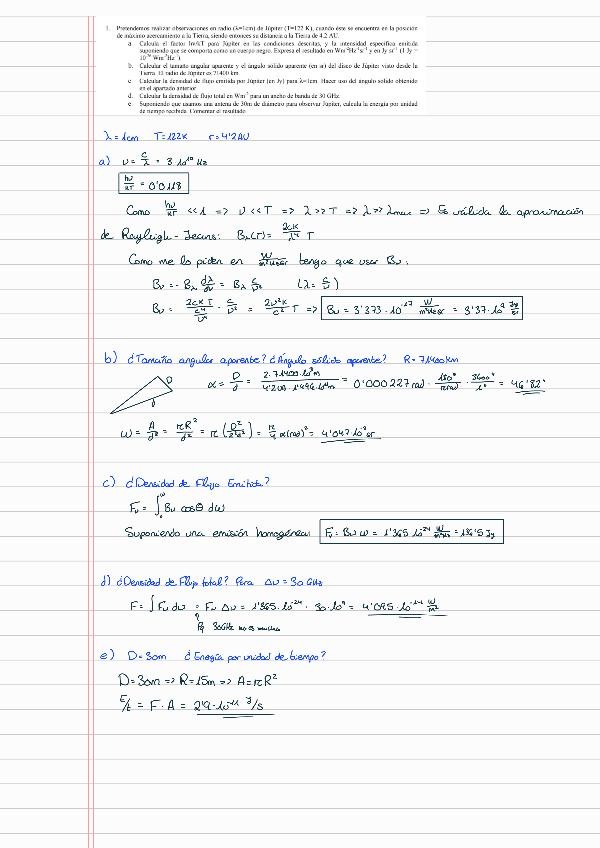 1. Pretendemos realizar observaciones en radio (λ=1cm) de Júpiter (T=122 K), cuando éste se encuentra en la posición
de máximo acercamiento a la Tierra, siendo entonces su distancia a la Tierra de 4.2 AU.
a. Calcula el factor hν/kT para Júpiter en las condiciones descritas, y la intensidad específica emitida
suponiendo que se comporta como un cuerpo negro. Expresa el resultado en Wm⁻²Hz⁻¹sr⁻¹ y en Jy sr⁻¹ (1 Jy =
10⁻²⁶ Wm⁻²Hz⁻¹).
b. Calcular el tamaño angular aparente y el ángulo sólido aparente (en sr) del disco de Júpiter visto desde la
Tierra. El radio de Júpiter es 71400 km
c. Calcular la densidad de flujo emitida por Júpiter (en Jy) para λ=1cm. Hacer uso del ángulo sólido obtenido
en el apartado anterior
d. Calcular la densidad de flujo total en Wm⁻² para un ancho de banda de 30 GHz
e. Suponiendo que usamos una antena de 30m de diámetro para observar Júpiter, calcula la energía por unidad
de tiempo recibida. Comentar el resultado
λ = 1cm T=122K r=4'2AU
a) ν = c/λ = 3·10¹⁰ Hz
hν/kT = 0'0118
Como hν/kT <<1 => ν << T => λ >> T => λ >> λmax => Es válida la aproximación
de Rayleigh-Jeans: Bλ(T) = 2cK/λ⁴ T
Como me lo piden en W/m²Hzsr tengo que usar Bν:
Bν = -Bλ dλ/dν = Bλ c/ν² (λ = c/ν)
Bν = 2cKT/(c⁴/ν⁴) · c/ν² = 2ν²K/c² T => Bν = 3'373·10⁻¹⁷ W/m²Hzsr = 3'37·10⁹ Jy/sr
b) ¿Tamaño angular aparente? ¿Ángulo sólido aparente? R = 71400km
D
d
α = D/d = 2·71400·10³m / = 0'000227 rad · 180°/πrad · 3600"/1° = 46'82"
ω = A/d² = πR²/d² = π(D²/2²d²) = π/4 α(rad)² = 4'047·10⁻⁸ sr
c) ¿Densidad de Flujo Emitida?
Fν = ∫₀^ω Bν cosθ dω
Suponiendo una emisión homogénea: Fν = Bν ω = 1'365·10⁻²⁴ W/m²Hz = 136'5 Jy
d) ¿Densidad de Flujo total? Para Δν = 30 GHz
F = ∫ Fν dν = Fν Δν = 1'365·10⁻²⁴ · 30·10⁹ = 4'095·10⁻¹⁴ W/m²
30GHz no es mucho
e) D = 30m ¿Energía por unidad de tiempo?
D = 30m => R = 15m => A = πR²
E/t = F · A = 2'9·10⁻¹¹ J/s